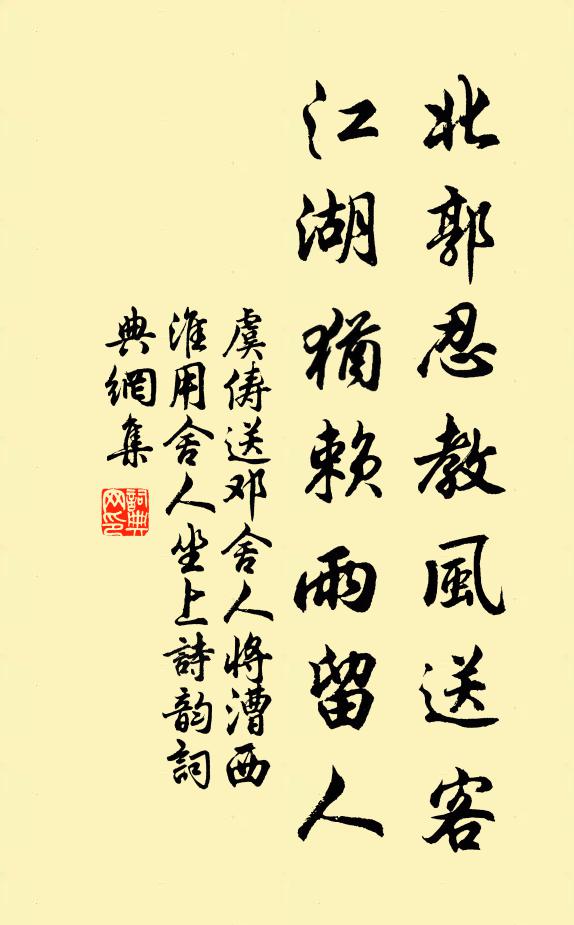 北郭忍教風送客
江湖猶賴雨留人
虞儔送邓舍人將漕西
淮用舍人坐上詩韵詞
典網集
詞典网印